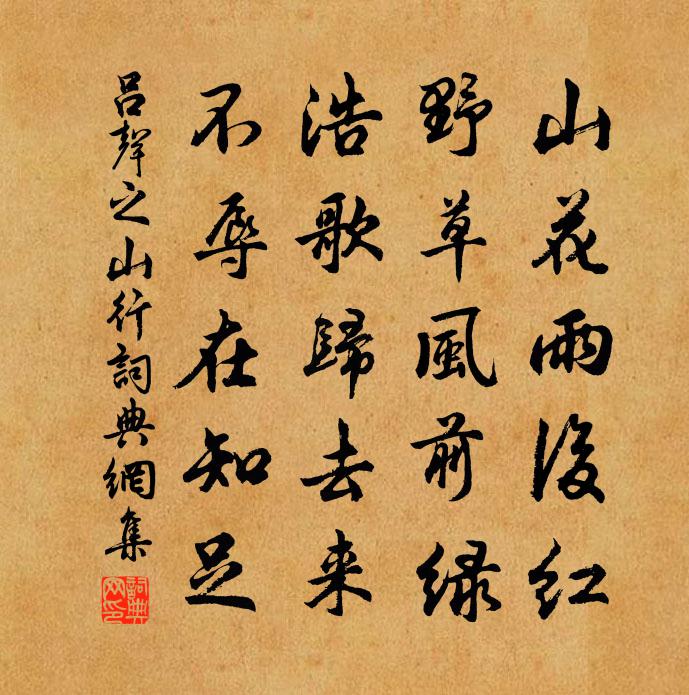 山花雨後红
野草風前緑
浩歌歸去来
不辱在知足
吕聲之山行詞典網集
詞典网印